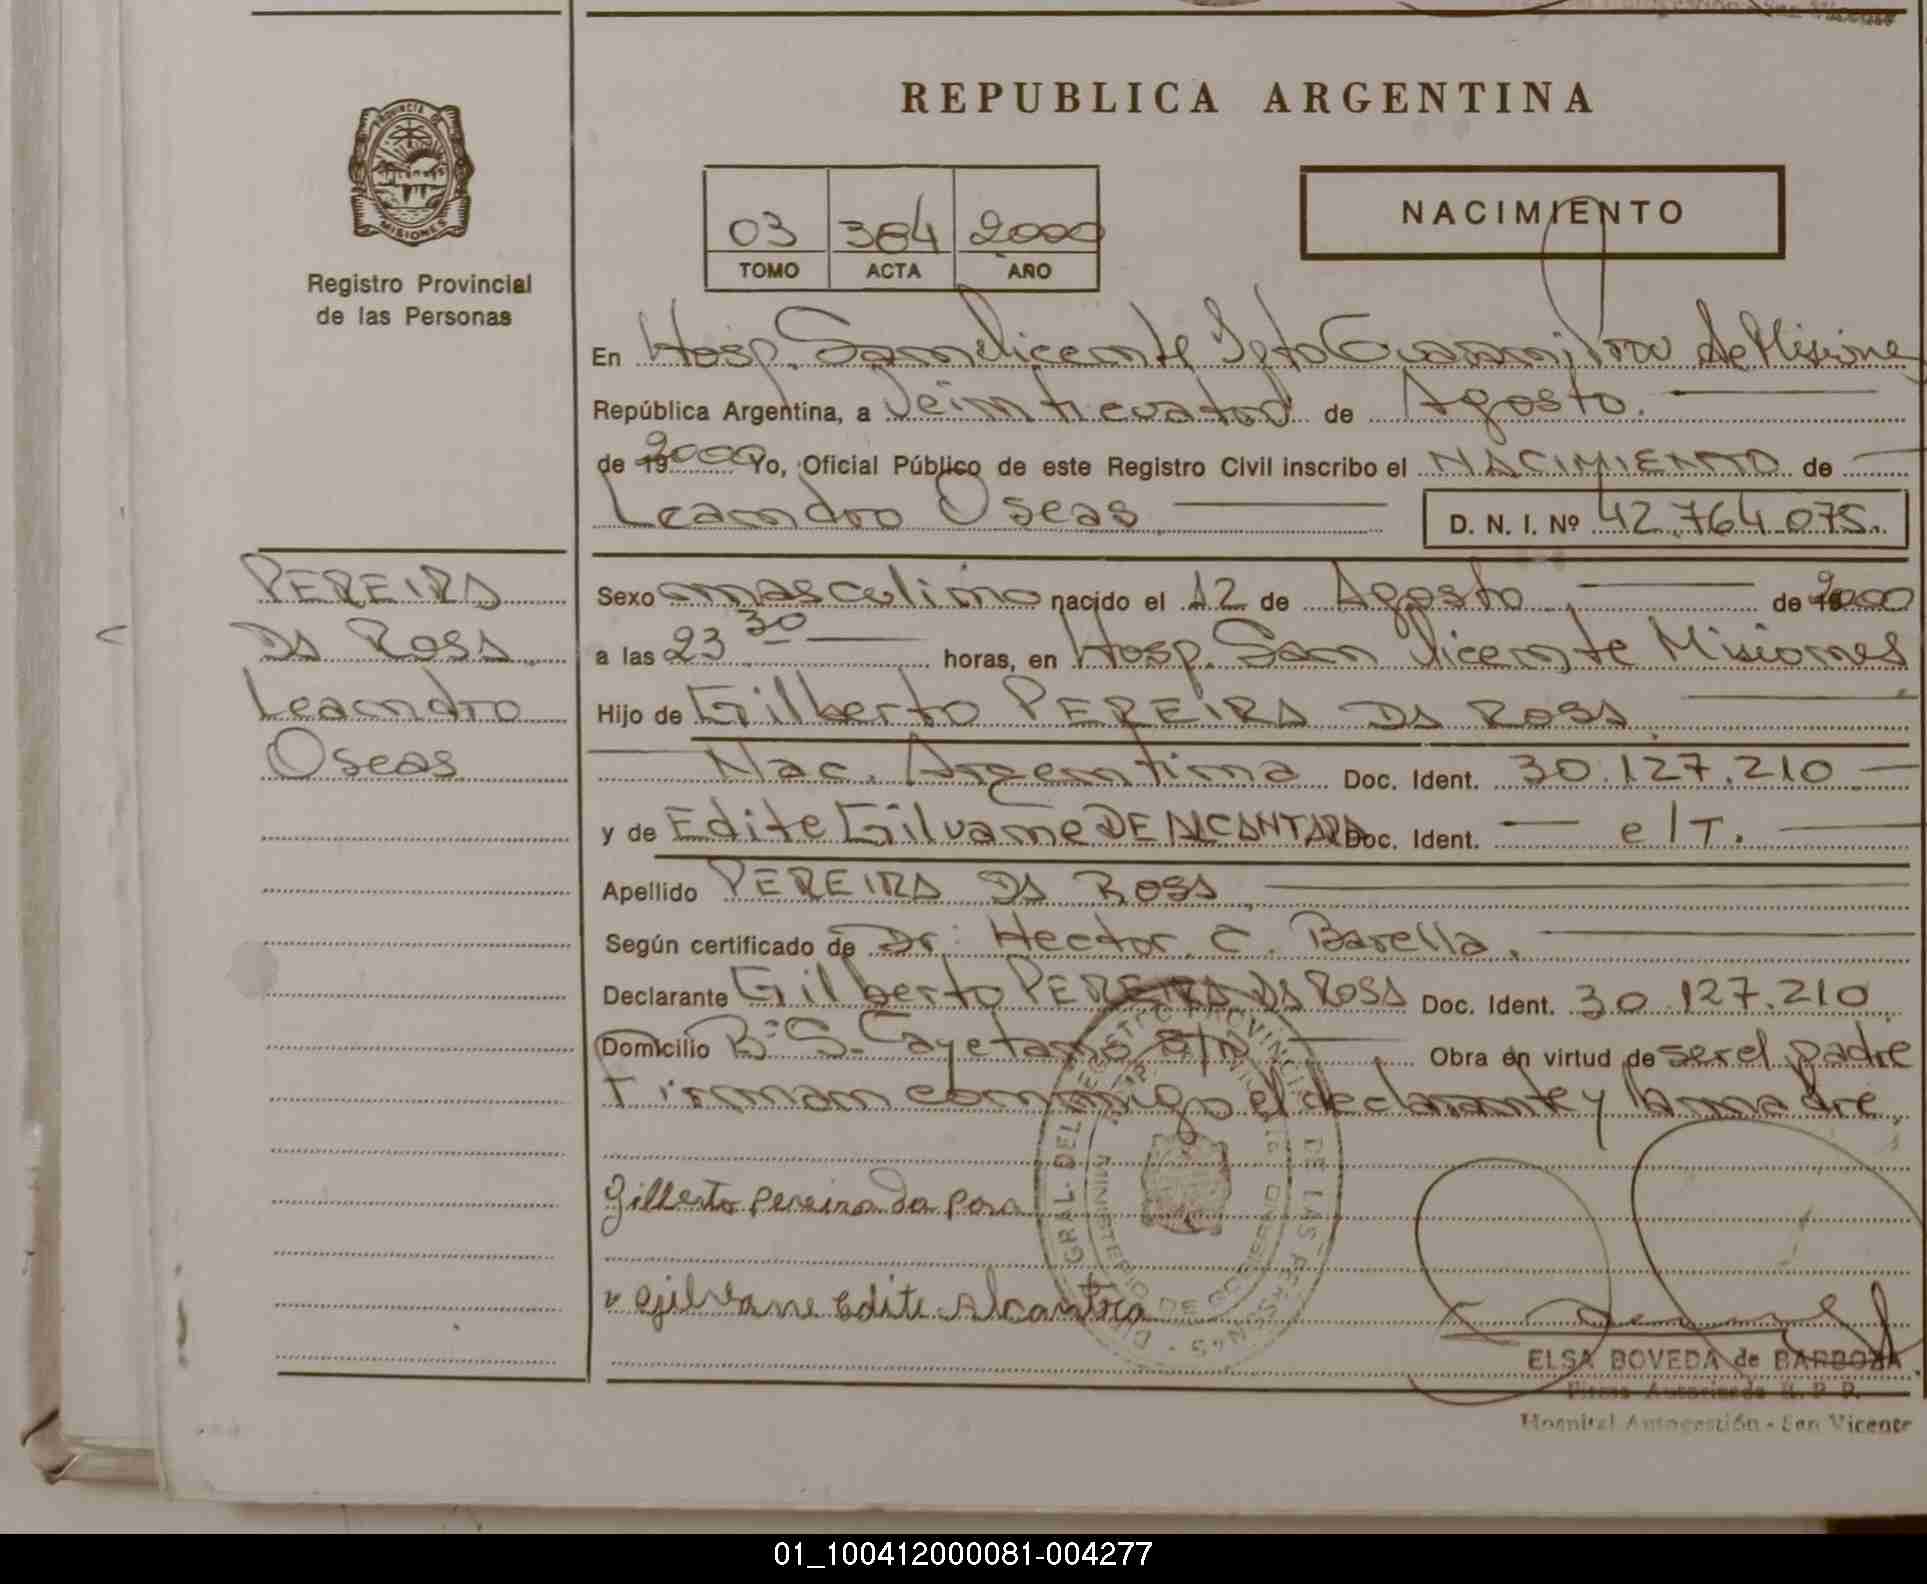 REPUBLICA ARGENTINA
PROVINCIA DE MISIONES
Registro Provincial
de las Personas
03 384 2000
TOMO ACTA AÑO
NACIMIENTO
En Hosp. San Vicente Dpto Guarani Prov de Misiones
República Argentina, a Veinticuatro de Agosto.
de 19 2000 Yo, Oficial Público de este Registro Civil inscribo el NACIMIENTO de
Leandro Oseas D. N. I. Nº 42.764.075.
PEREIRA
DA ROSA
Leandro
Oseas
Sexo masculino nacido el 12 de Agosto de 2000
a las 23 30 horas, en Hosp. San Vicente Misiones
Hijo de Gilberto PEREIRA DA ROSA
Nac. Argentina Doc. Ident. 30.127.210
y de Edite Gilvane DE ALCANTARA Doc. Ident. e/T.
Apellido PEREIRA DA ROSA
Según certificado de Dr. Hector C. Barella.
Declarante Gilberto PEREIRA DA ROSA Doc. Ident. 30.127.210
Domicilio Bº S. Cayetano S/N Obra en virtud de ser el padre
Firman conmigo el declarante y la madre.
Gilberto Pereira da Rosa
Gilvane Edite Alcantra
ELSA BOVEDA de BARBOZA
Firma Autorizada R. P. P.
Hospital Autogestión - San Vicente
01_100412000081-004277